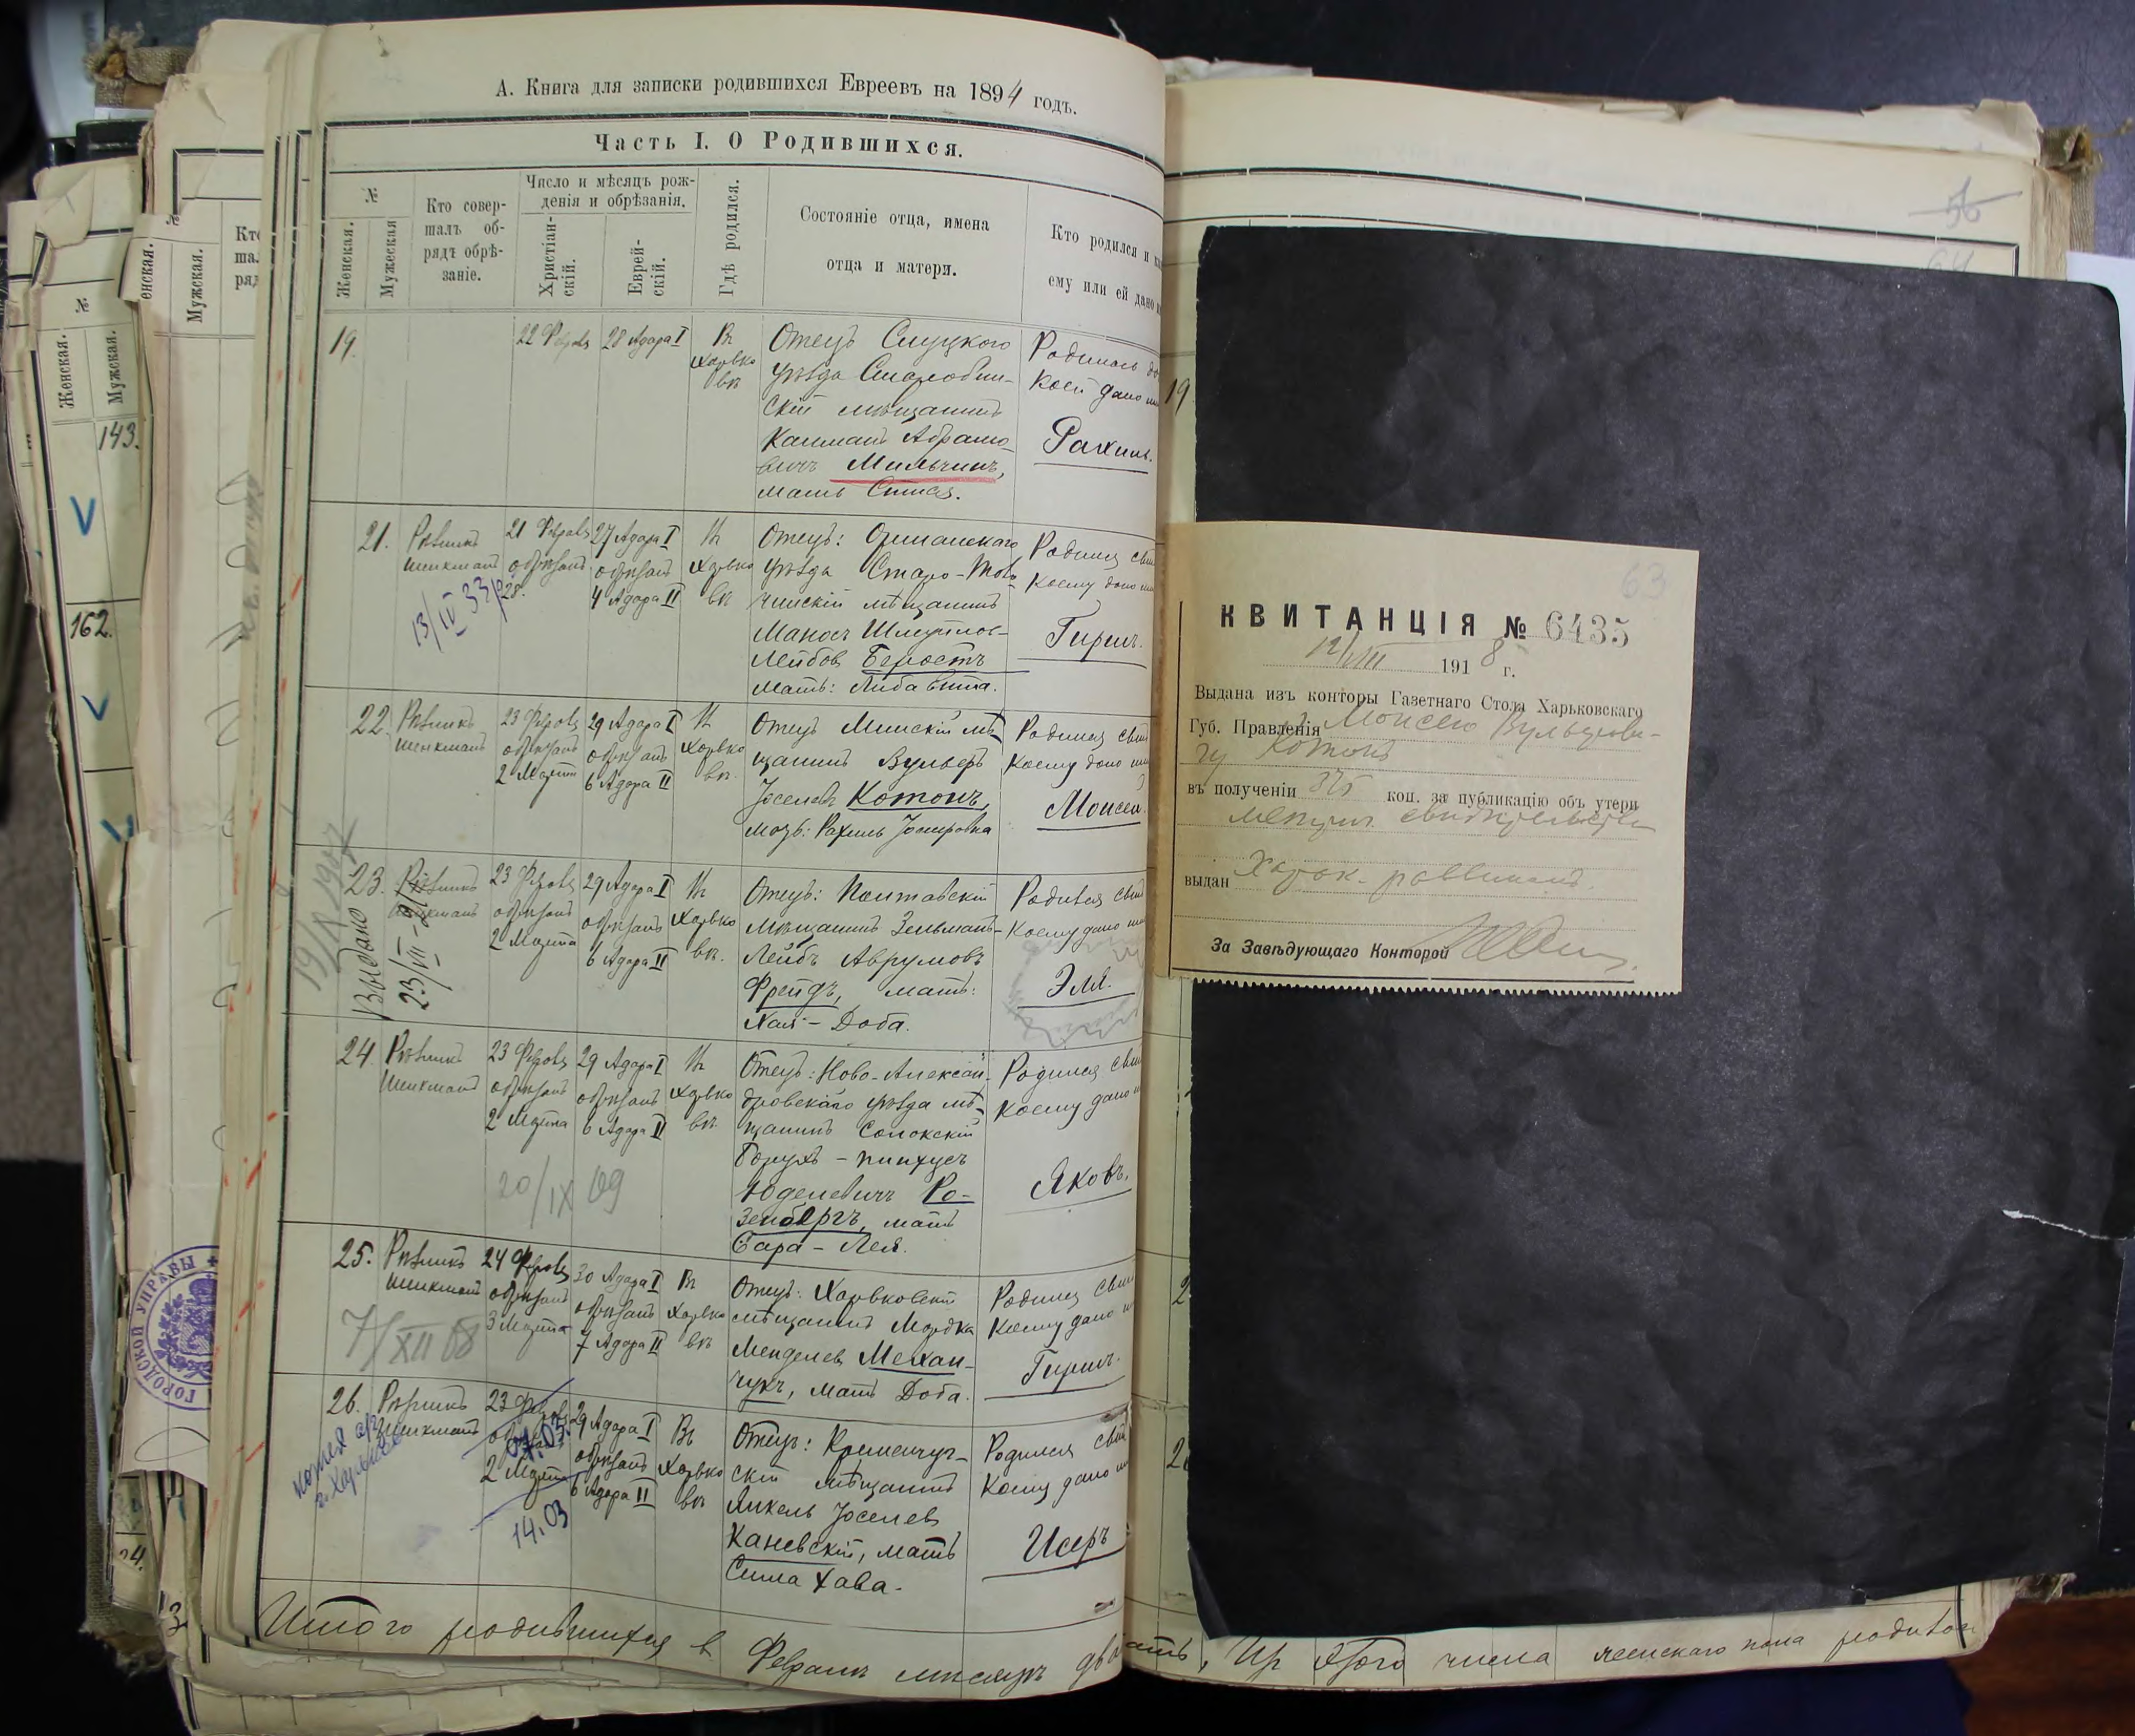 А. Книга для записки родившихся Евреевъ на 1894 годъ.
Часть I. О Родившихся.
№
Женская.
Мужеская
Кто совер-
шалъ об-
рядъ обрѣ-
заніе.
Число и мѣсяцъ рож-
денія и обрѣзанія.
Христіан-
скій.
Еврей-
скій.
Гдѣ родился.
Состояніе отца, имена
отца и матери.
Кто родился и
ему или ей дано
19.
22 Февраля
28 Адара I
Въ
Харько
вѣ
Отецъ Слуцкого
уѣзда Старобин-
скій мѣщанинъ
Калманъ Абрамо
вичъ Мильчинъ,
мать
Родилась
коей дано
Рахиль.
21.
Рѣзникъ
Шикманъ
13/IV 33
21 Февраля
обрѣзанъ
28.
27 Адара I
обрѣзанъ
4 Адара II
Въ
Харько
вѣ
Отецъ:
уѣзда Старо-Толо
чинскій мѣщанинъ
Лейбов
Мать: Либа
Родился
Коему дано
Гиршъ.
22.
Рѣзникъ
Шикманъ
23 Февраля
обрѣзанъ
2 Марта
29 Адара I
обрѣзанъ
6 Адара II
Въ
Харько
вѣ.
Отецъ Минскій мѣ-
щанинъ Вульфъ
Іоселевъ Котонъ,
Мать: Рахиль
Родился
Коему дано
Моисей.
19/X 1907
Выдано
23/VII-21
23.
Рѣзникъ
Шикманъ
23 Февраля
обрѣзанъ
2 Марта
29 Адара I
обрѣзанъ
6 Адара II
Въ
Харько
вѣ.
Отецъ: Полтавскій
Мѣщанинъ Зельманъ-
Лейбъ Аврумовъ
Фрейдъ, мать:
Хая-Доба.
Родился
Коему дано
Эля.
24.
Рѣзникъ
Шикманъ
23 Февраля
обрѣзанъ
2 Марта
29 Адара I
обрѣзанъ
6 Адара II
Въ
Харько
вѣ.
20/IX 09
Отецъ: Ново-Алексан-
дровскаго уѣзда мѣ-
щанинъ Солокскій
Борухъ-Пинхусъ
Юделевичъ Ро-
зенбергъ, мать
Сара-Лея.
Родился
Коему дано
Яковъ.
25.
Рѣзникъ
Шикманъ
7/XII 08
24 Февраля
обрѣзанъ
3 Марта
30 Адара I
обрѣзанъ
7 Адара II
Въ
Харько
вѣ
Отецъ: Харьковскій
мѣщанинъ Мордка
Менделев Механ-
чукъ, мать Доба.
Родился
Коему дано
Гиршъ.
26.
Рѣзникъ
Шикманъ
23
2 Марта
07.03.
14.03
29 Адара I
обрѣзанъ
6 Адара II
Въ
Харько
вѣ
Отецъ: Кременчуг-
скій мѣщанинъ
Янкель Іоселев
Каневскій, мать
Хава.
Родился
Коему дано
Исеръ
Итого родившихся в Февралѣ мѣсяцѣ
Из этого числа женскаго пола
№
Женская.
Мужская.
143.
162.
Мужская.
ГОРОДСКОЙ УПРАВЫ
56
19
63
КВИТАНЦІЯ № 6435
12/VIII 1918 г.
Выдана изъ конторы Газетнаго Стола Харьковскаго
Губ. Правленія Моисею Вульфови-
чу Котонъ
въ полученіи 375 коп. за публикацію объ утери
метрич. свидѣтельства
выдан Харьк. раввиномъ.
За Завѣдующаго Конторой